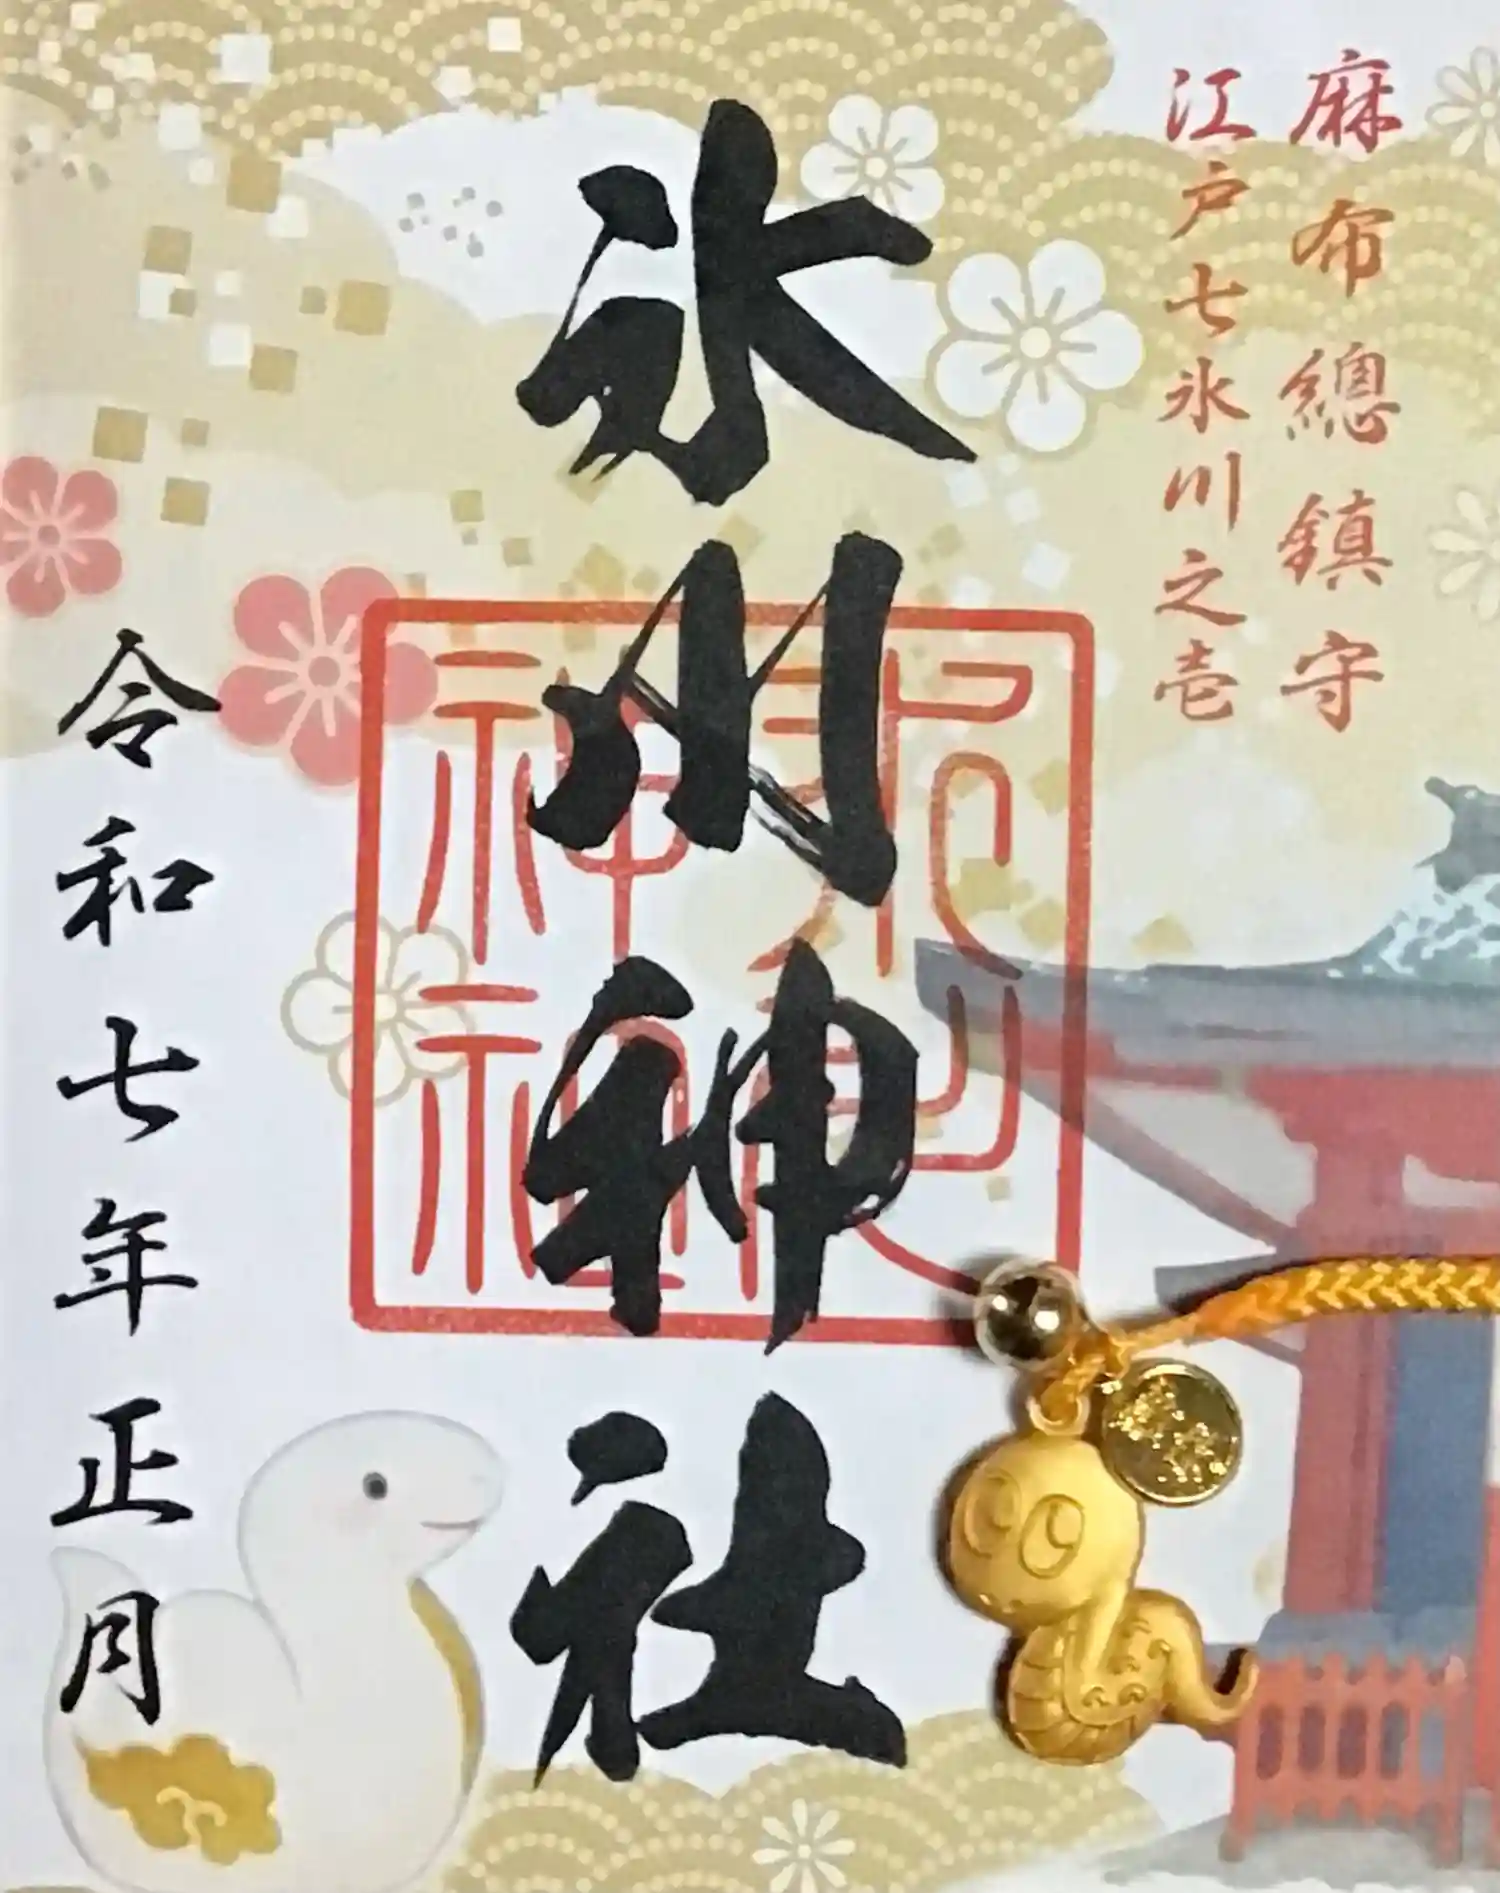 麻布總鎮守
江戸七氷川之壱
氷川神社
氷川神社
令和七年正月